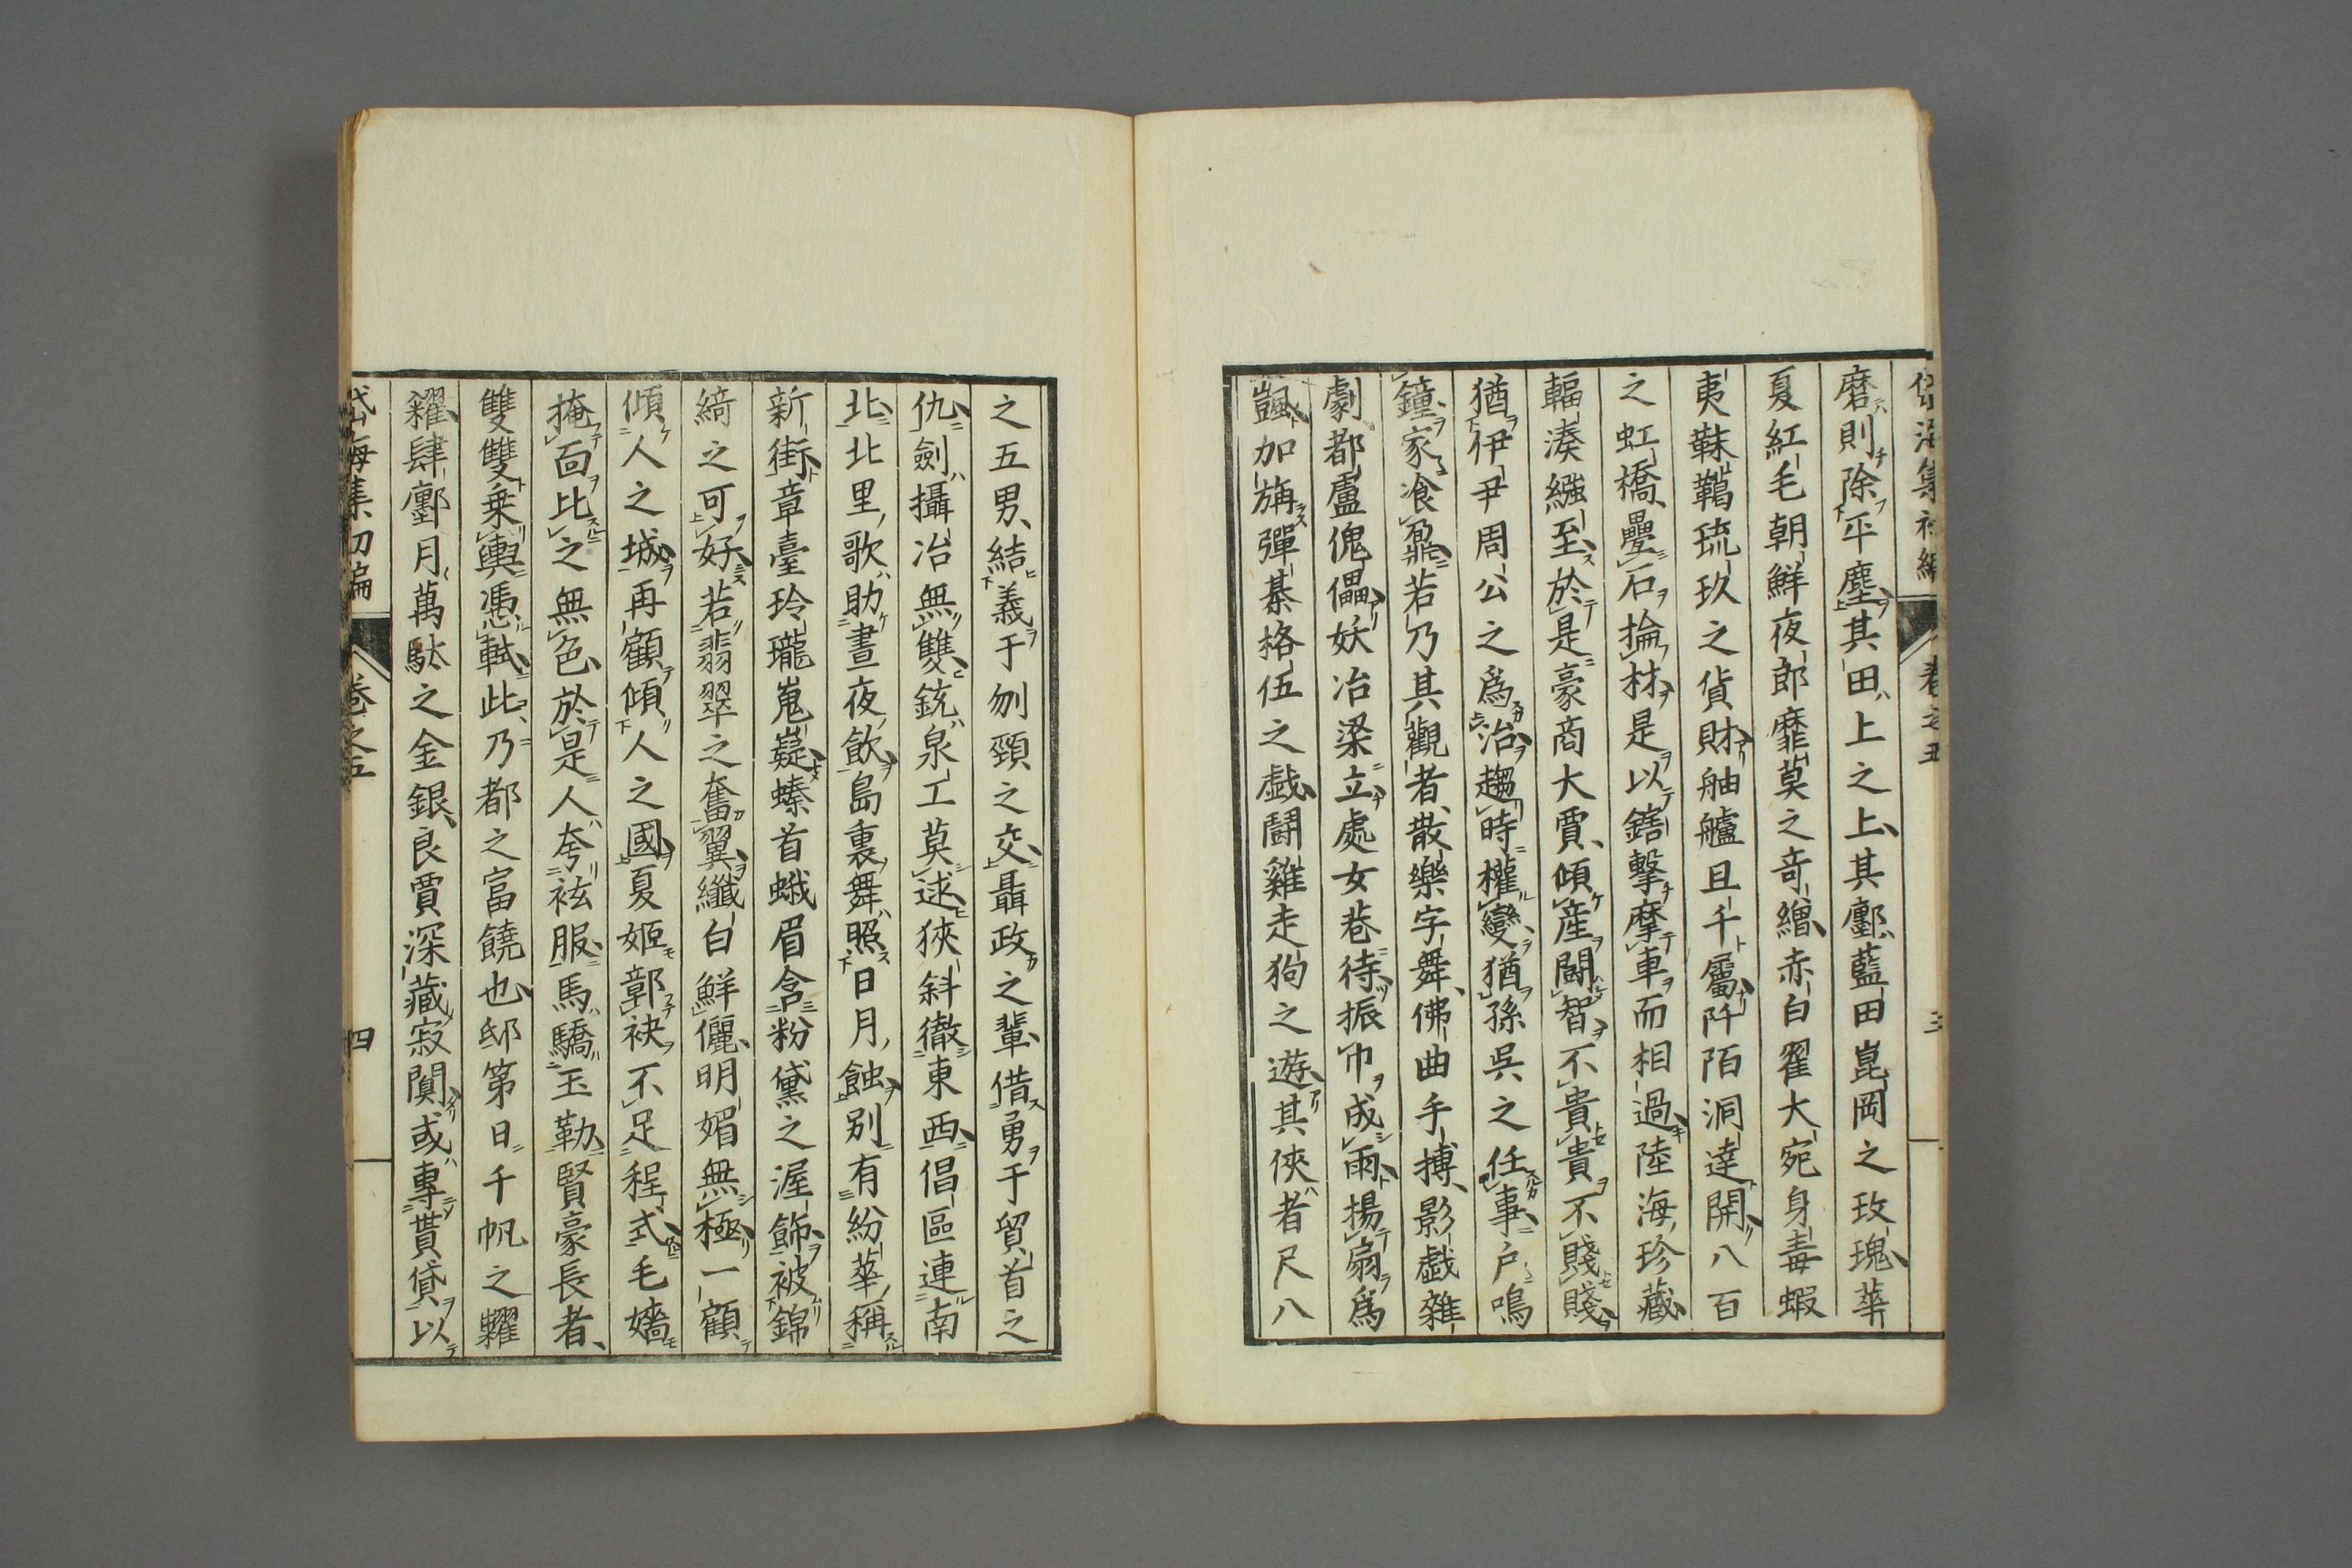 磨則除平塵其田上之上其鄽藍田崑岡之玫瑰華
夏紅毛朝鮮夜郎靡莫之奇繒赤白翟大宛身毒蝦
夷靺鞨琉玖之貨財舳艫且千屬阡陌洞達開八百
之虹橋疊石掄材是以鎝擊摩車而相過陸海珍藏
輻湊繈至於是豪商大賈傾産鬪智不貴貴不賤賤
猶伊尹周公之爲治趨時權變猶孫呉之任事户鳴
鐘家飡鼐若乃其觀者散樂字舞佛曲手搏影戯雜
劇都盧傀儡妖冶梁立處女巷待振巾成雨揚扇爲
颽加旃彈棊格伍之戯鬪雞走狗之遊其俠者尺八
之五男結義于刎頸之交聶政之輩借勇于貿首之
仇劍攝冶無雙鋐泉工莫逑狹斜徹東西倡區連南
北北里歌助晝夜飲島裏舞照日月蝕别有紛華稱
新街章臺玲瓏嵬嶷螓首蛾眉含粉黛之渥飾被錦
綺之可好若翡翠之奮翼纖白鮮儷明媚無極一顧
傾人之城再顧傾人之國夏姬鄣袂不足程式毛嬙
掩面比之無色於是人夸袨服馬驕玉勒賢豪長者
雙雙乗輿憑軾此乃都之富饒也邸第日千帆之糶
糴肆鄽月萬駄之金銀良賈深藏寂闃或專貰貸以
岱海集初編 卷之五 四